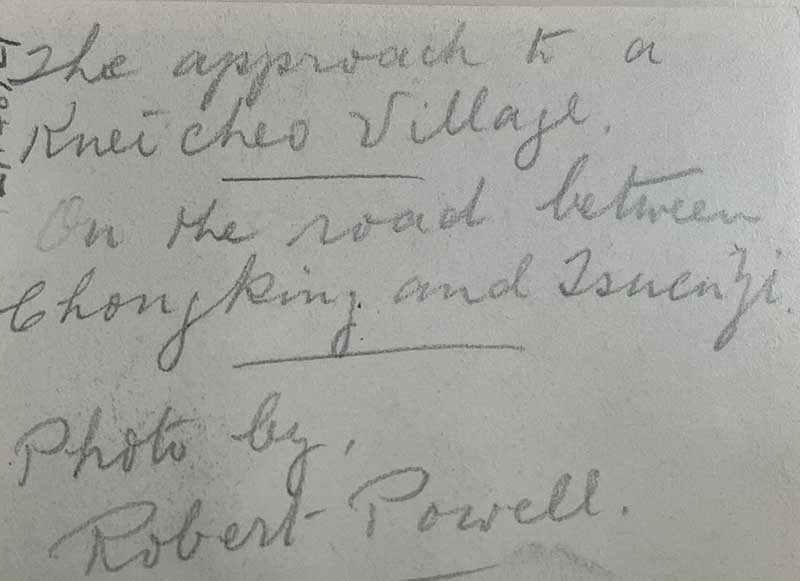 The approach to a
Kneicheo Village.
On the road between
Chongking and Tsuenyi.
Photo by,
Robert Powell.